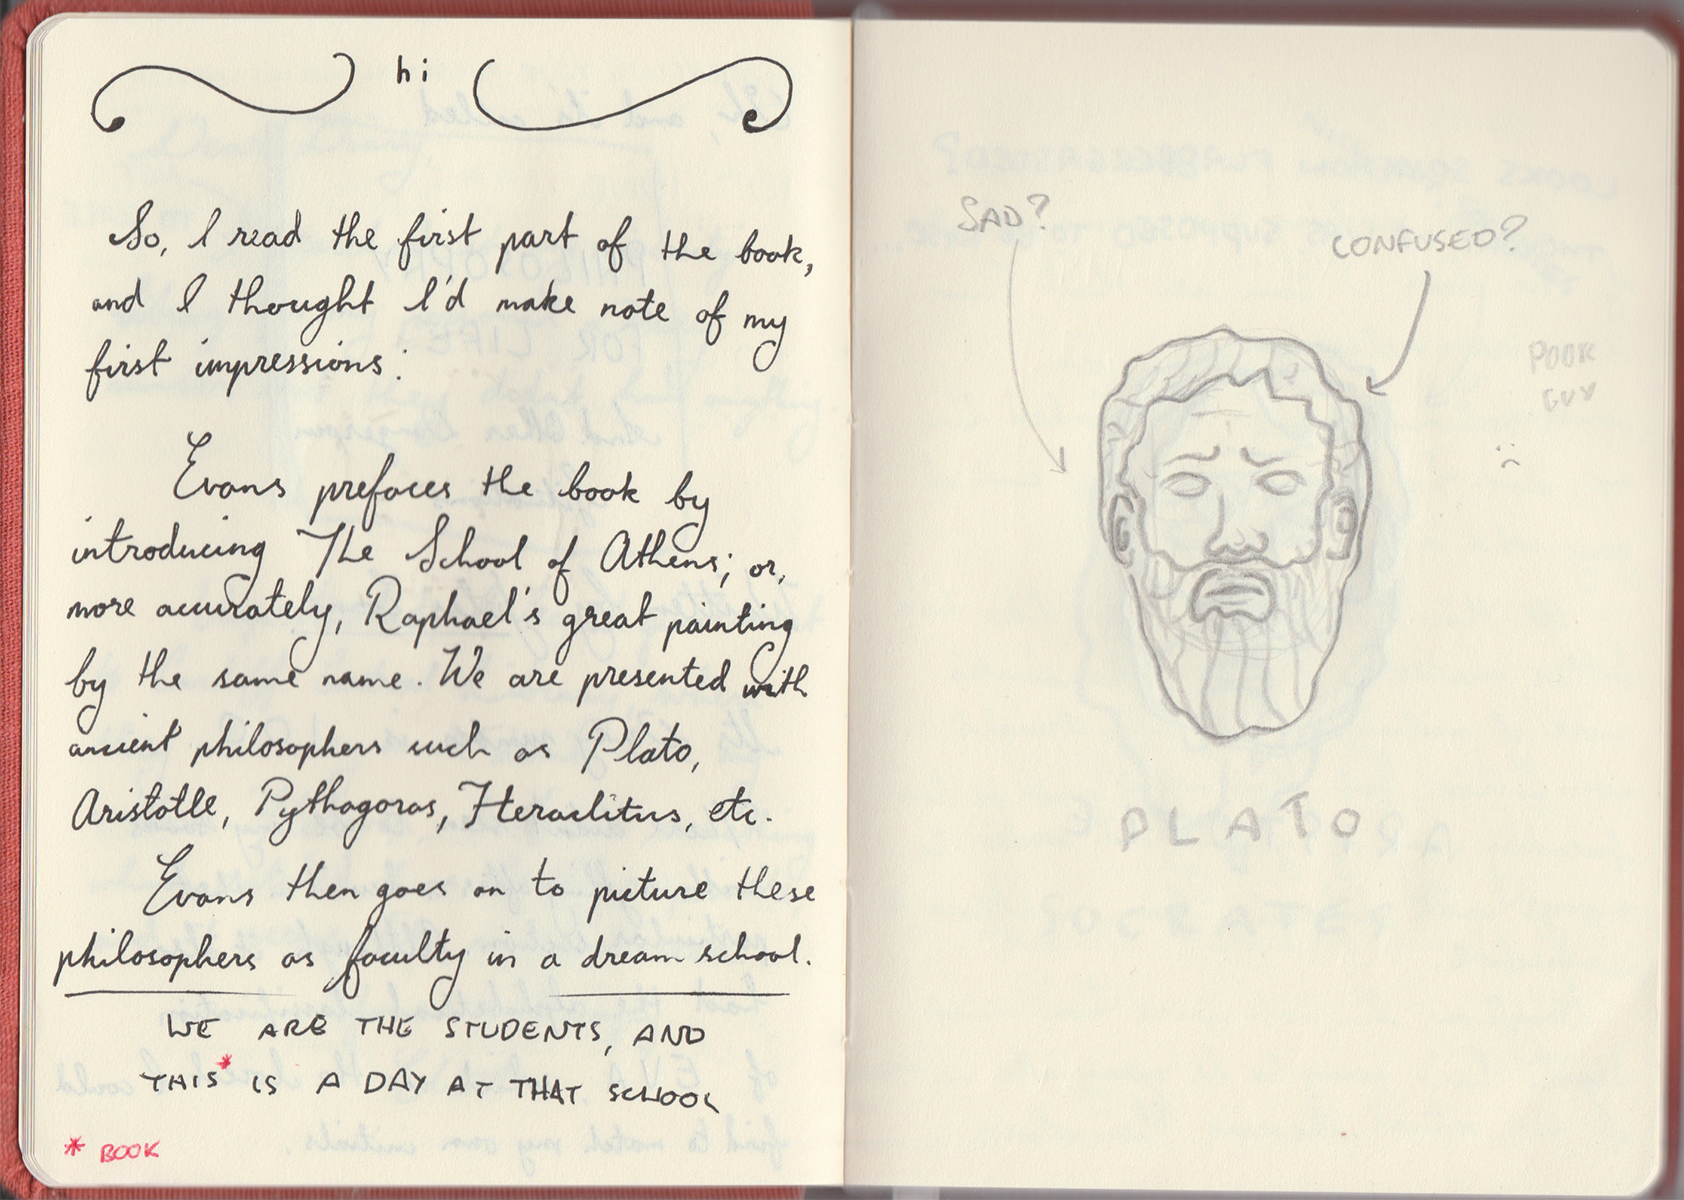 hi
So, I read the first part of the book,
and I thought I'd make note of my
first impressions:
Evans prefaces the book by
introducing The School of Athens; or,
more accurately, Raphael's great painting
by the same name. We are presented with
ancient philosophers such as Plato,
Aristotle, Pythagoras, Heraclitus, etc.
Evans then goes on to picture these
philosophers as faculty in a dream school.
WE ARE THE STUDENTS, AND
THIS* IS A DAY AT THAT SCHOOL
* BOOK
SAD?
CONFUSED?
POOR
GUY
:(
PLATO
SOCRATES